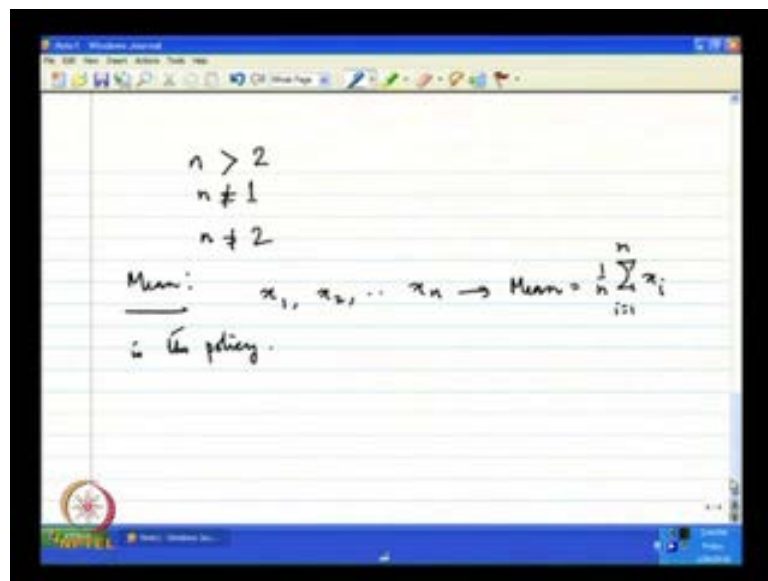 Note1 - Windows Journal
File Edit View Insert Actions Tools Help
n > 2
n ≠ 1
n ≠ 2
Mean: x₁, x₂, .. xₙ → Mean = 1/n Σᵢ₌₁ⁿ xᵢ
is the policy.
NPTEL